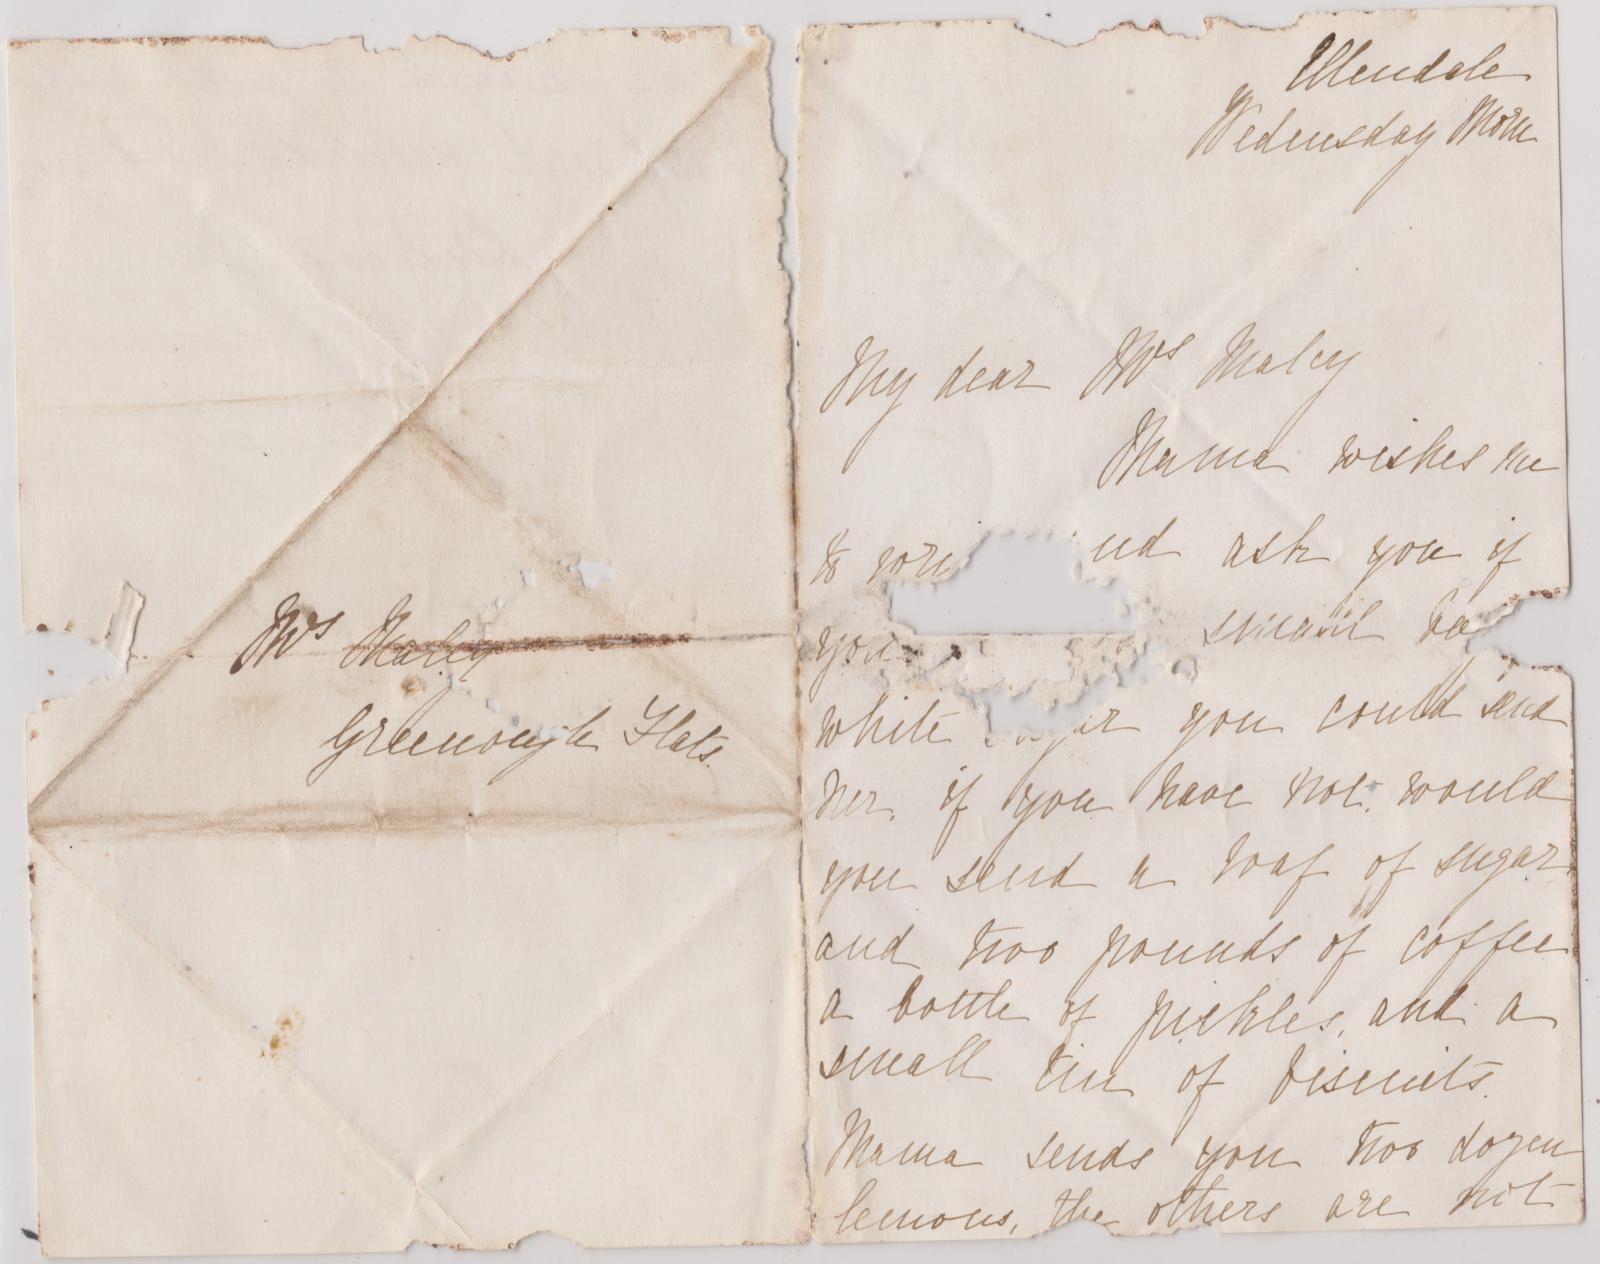 Mrs Maley
Greenough Flats.
Ellendale
Wednesday Morn
My dear Mrs Maley
Mama wishes me
to wri nd ask you if
you small ba
white you could send
her, if you have not, would
you send a loaf of sugar
and two pounds of coffee
a bottle of pickles, and a
small tin of biscuits.
Mama sends you two dozen
lemons, the others are not